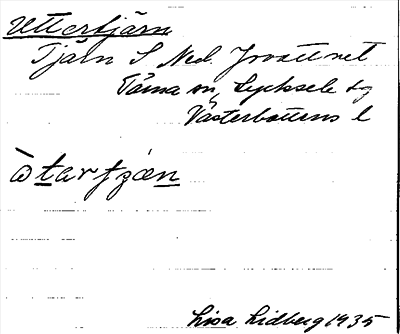 Uttertjärn
Tjärn S Ned. Jovattnet
Tärna sn, Lycksele lg
Västerbottens l
àtartzæn
Lisa Lidberg 1935